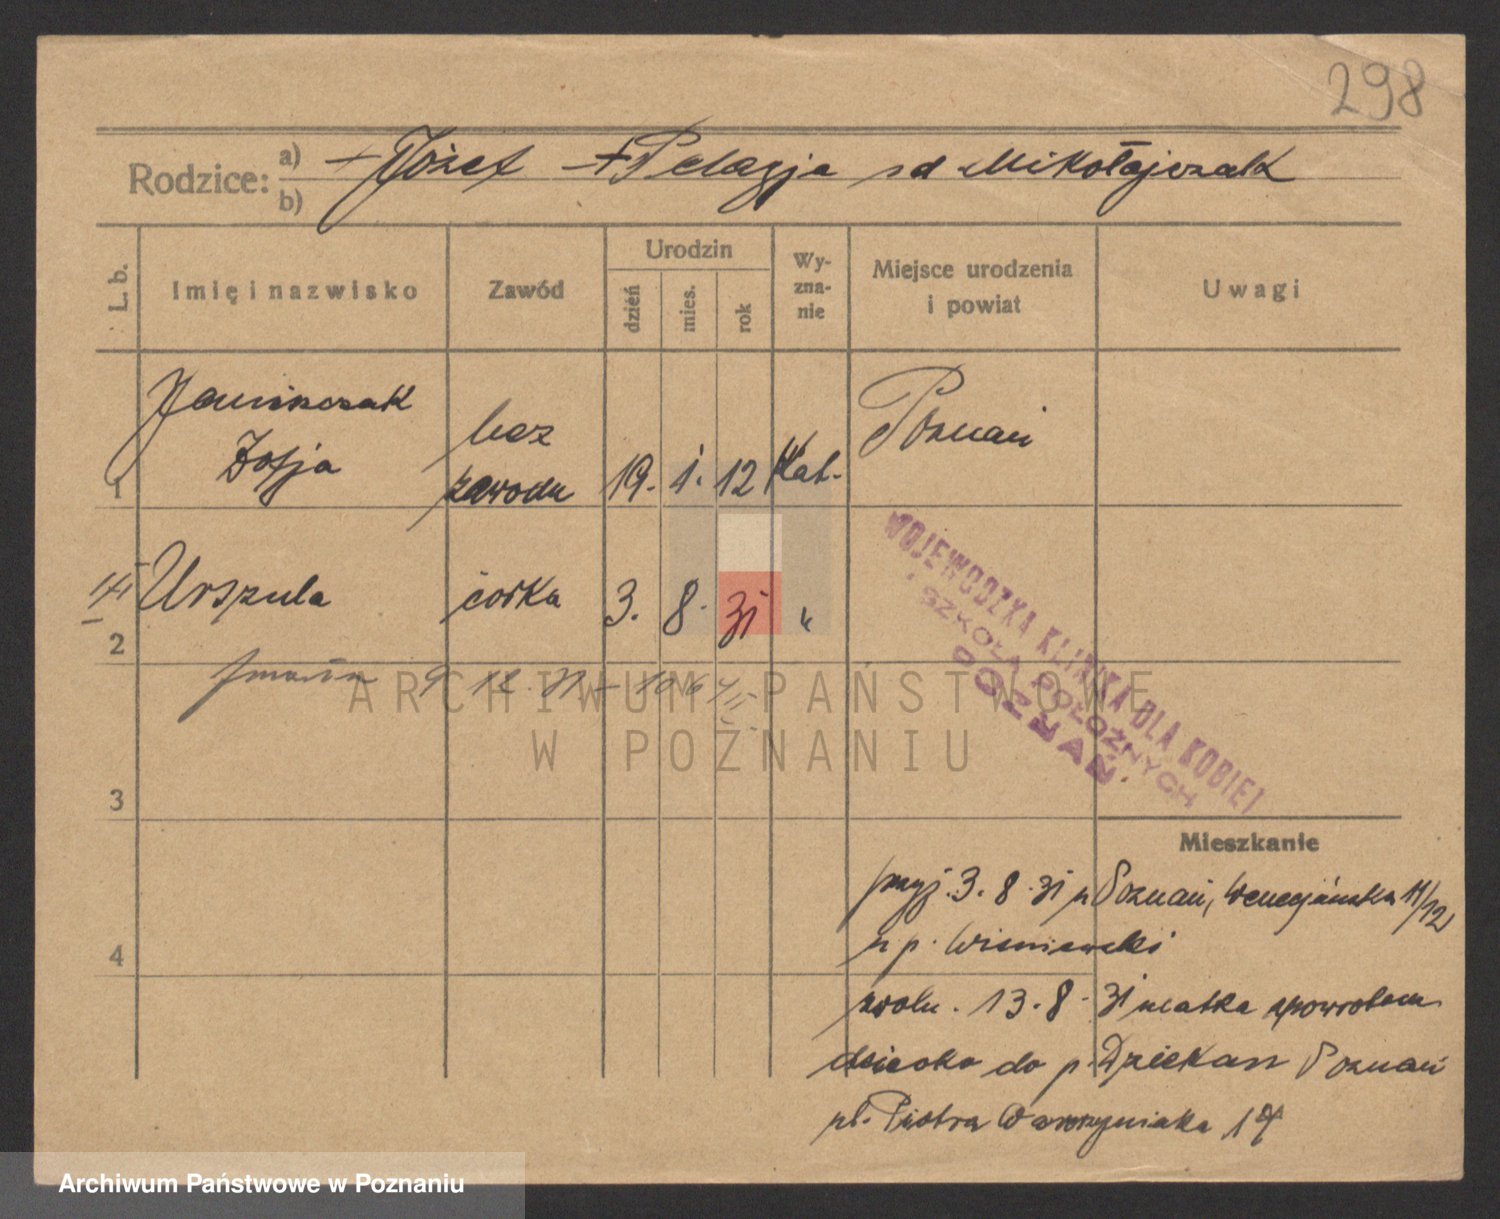 298
Rodzice: a) + Józef + Pelagja zd Mikołajczak
b)
L. b.
Imię i nazwisko
Zawód
Urodzin
dzień
mies.
rok
Wy-
zna-
nie
Miejsce urodzenia
i powiat
Uwagi
Janiszczak
Zofja
bez
zawodu
19. 1. 12 Kat.
Poznań
1
Urszula córka 3. 8. 31 "
2
zmarła 9 12 31
WOJEWÓDZKA KLINIKA DLA KOBIET
I SZKOŁA POŁOŻNYCH
POZNAŃ
ARCHIWUM PAŃSTWOWE
W POZNANIU
3
Mieszkanie
przyj. 3. 8. 31 z Poznań, Wenecjańska 11/12
u p. Wiśniewski
4
zwoln. 13. 8. 31 matka zpowrotem
dziecko do p. Dziekan Poznań
pl. Piotra Wawrzyniaka 17
Archiwum Państwowe w Poznaniu